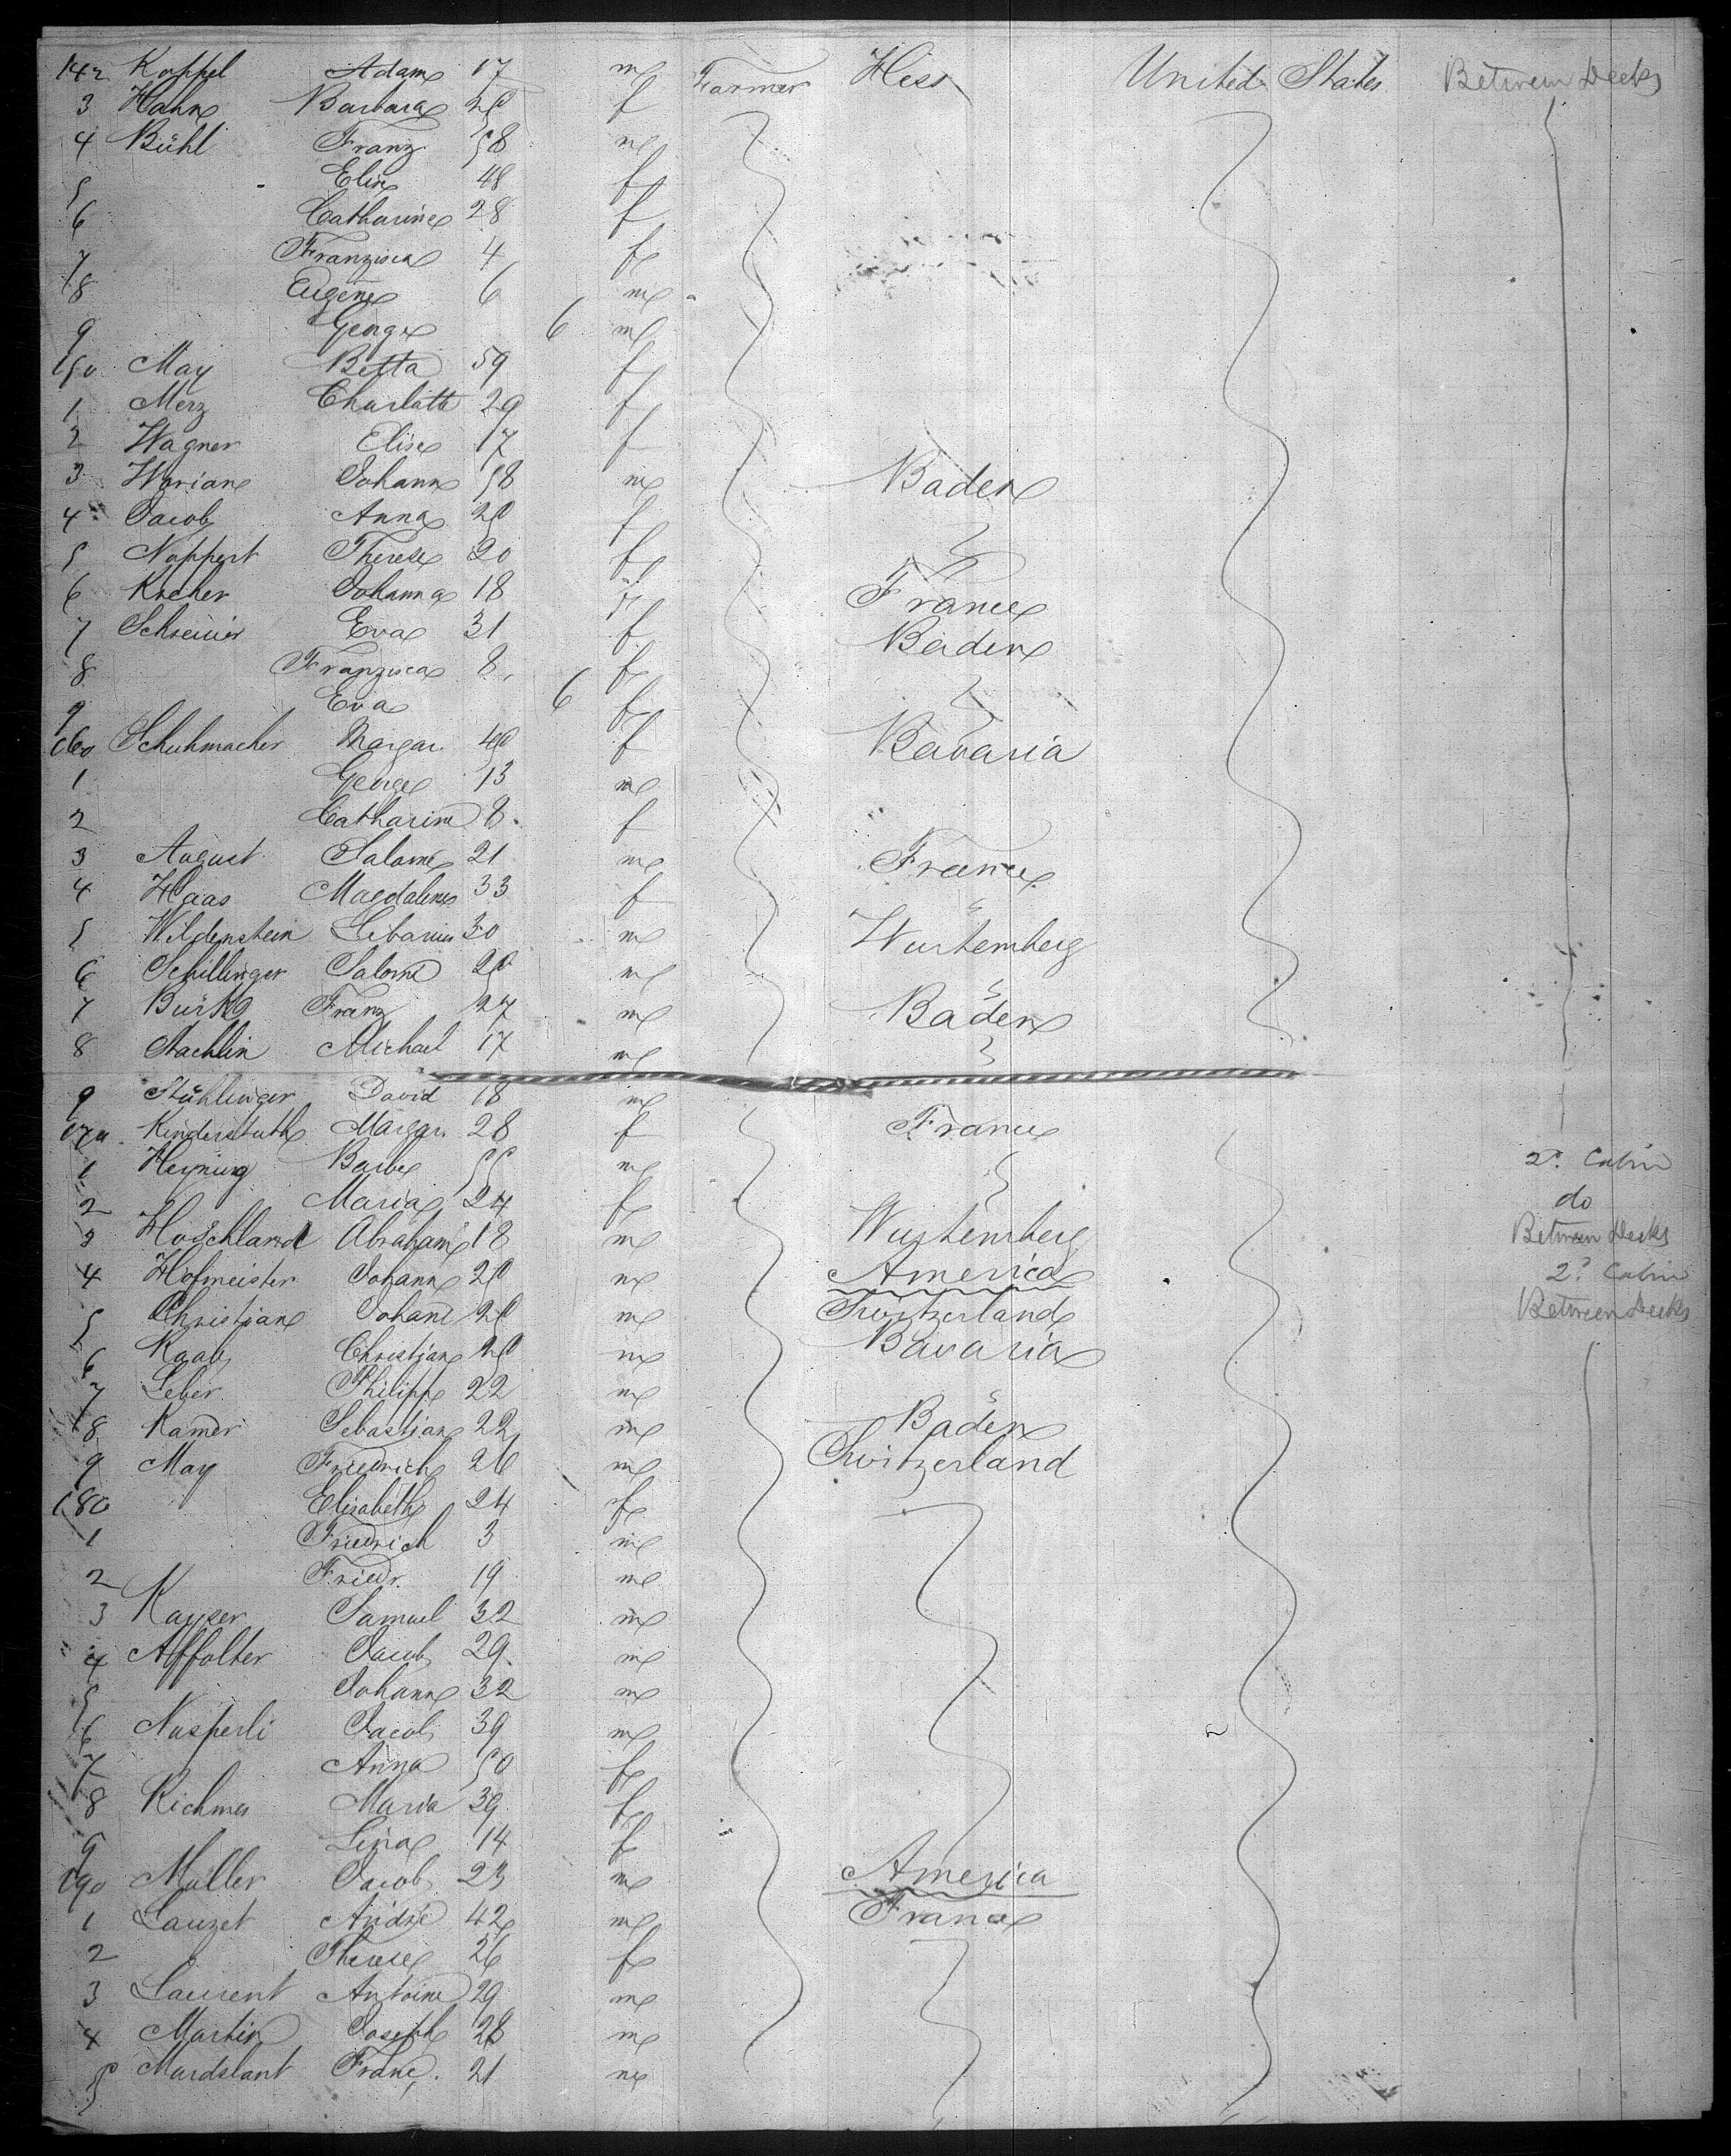 142 Koppel Adam 17 m Farmer Hess United States Between Decks
3 Hahn Barbara 20 f
4 Bühl Franz 58 m
5 Elise 48 f
6 Catharine 28 f
7 Franzisca 4 f
8 Eugene 6 m
9 George 6 m
150 May Betta 59 f
1 Merz Charlotte 29 f
2 Wagner Elise 17 f
3 Johann 58 m Baden
4 Jacob Anna 20 f
5 Noppert Therese 20 f
6 Kocher Johanna 18 f France
7 Schreiner Eva 31 f Baden
8 Franzisca 8 f
9 Eva 6 f
160 Schuhmacher Margar. 40 f Bavaria
1 George 13 m
2 Catharine 8 f
3 August Salome 21 m France
4 Haas Magdalena 33 f "
5 Wildenstein 30 m Wurtemberg
6 Schillinger Salome 20 m "
7 Franz 27 m Baden
8 Michael 17 m
9 Stühlinger David 18 m
170 Margar. 28 f France
1 Barbe 55 m 2d Cabin
2 Maria 24 f do
3 Hoschland Abraham 18 m Wurtemberg Between Decks
4 Hofmeister Johann 20 m America 2d Cabin
5 Christian Johann 20 m Switzerland Between Decks
6 Raab Christian 20 m Bavaria
7 Leber Philipp 22 m "
8 Kamer Sebastian 22 m Baden
9 May Friedrich 26 m Switzerland
180 Elisabeth 24 f
1 Friedrich 3 m
2 Friedr. 19 m
3 Kayser Samuel 32 m
4 Affolter Jacob 29 m
5 Johann 32 m
6 Nusperli Jacob 39 m
7 Anna 50 f
8 Maria 39 f
9 Lina 14 f
190 Muller Jacob 23 m America
1 Lauzet André 42 m France
2 Therese 26 f
3 Laurent Antoine 29 m
4 Martin Joseph 28 m
5 Franc. 21 m